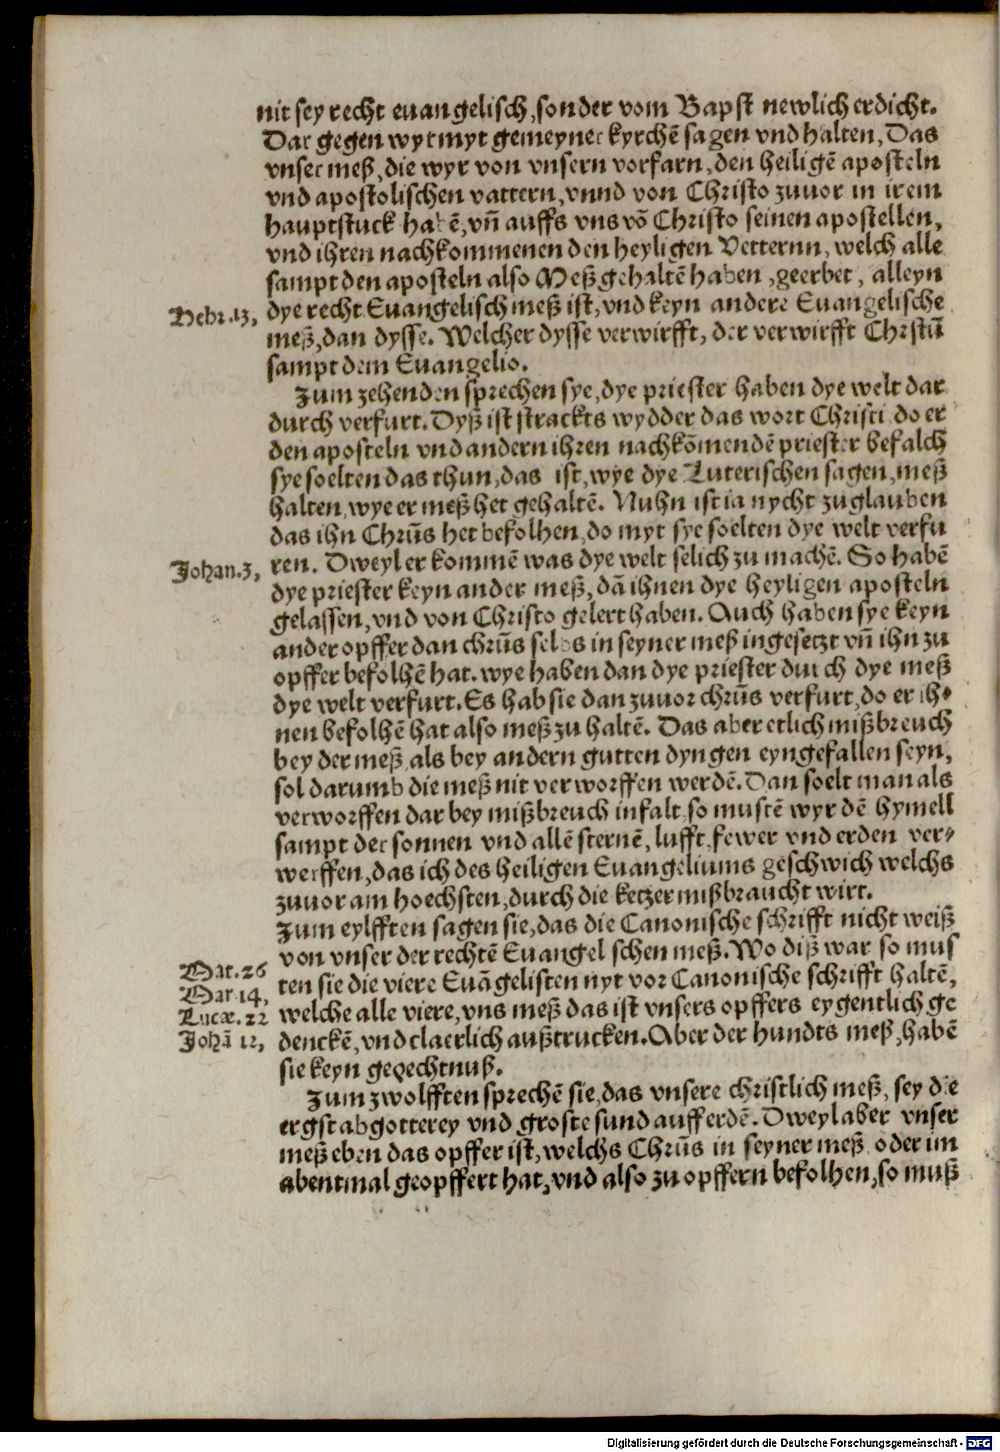 nit sey recht euangelisch, sonder vom Bapst newlich erdicht.
Dar gegen wyr myt gemeyner kyrchē sagen vnd halten, Das
vnser meß, die wyr von vnsern vorfarn, den heiligē aposteln
vnd apostolischen vattern, vnnd von Christo zuuor in irem
hauptstuck habē, vñ auffs vns vō Christo seinen apostellen,
vnd ihren nachkommenen den heyligen Vetternn, welch alle
sampt den aposteln also Meß gehaltē haben, geerbet, alleyn
Hebr. 13, dye recht Euangelisch meß ist, vnd keyn andere Euangelische
meß, dan dysse. Welcher dysse verwirfft, der verwirfft Christū
sampt dem Euangelio.
Zum zehenden sprechen sye, dye priester haben dye welt dar
durch verfurt. Dyß ist strackts wydder das wort Christi, do er
den aposteln vnd andern ihren nachkōmendē priester befalch
sye soelten das thun, das ist, wye dye Luterischen sagen, meß
halten, wye er meß het gehaltē. Nuhn ist ia nycht zuglauben
das ihn Chrūs het befolhen, do myt sye soelten dye welt verfu
Johan. 3, ren. Dweyl er kommē was dye welt selich zu machē. So habē
dye priester keyn ander meß, dā ihnen dye heyligen aposteln
gelassen, vnd von Christo gelert haben. Auch haben sye keyn
ander opffer dan chrūs selbs in seyner meß ingesetzt vñ ihn zu
opffer befolhē hat. wye haben dan dye priester durch dye meß
dye welt verfurt. Es hab sie dan zuuor chrūs verfurt, do er ih⸗
nen befolhē hat also meß zu haltē. Das aber etlich mißbreuch
bey der meß, als bey andern gutten dyngen eyngefallen seyn,
sol darumb die meß nit verworffen werdē. Dan soelt man als
verworffen dar bey mißbreuch infalt, so mustē wyr dē hymell
sampt der sonnen vnd allē sternē, lufft, fewer vnd erden ver⸗
werffen, das ich des heiligen Euangeliums geschwich welchs
zuuor am hoechsten, durch die ketzer mißbraucht wirt.
Zum eylfften sagen sie, das die Canonische schrifft nicht weiß
von vnser der rechtē Euangelischen meß. Wo diß war, so mus
Mat. 26 ten sie die viere Euāgelisten nyt vor Canonische schrifft haltē,
Mar 14, welche alle viere, vns meß das ist vnsers opffers eygentlich ge
Lucæ. 22 denckē, vnd claerlich außtrucken. Aber der hundts meß, habē
Johā 12, sie keyn geqechtnuß.
Zum zwolfften sprechē sie, das vnsere christlich meß, sey die
ergst abgotterey vnd groste sund auff erdē. Dweyl aber vnser
meß eben das opffer ist, welchs Chrūs in seyner meß oder im
abentmal geopffert hat, vnd also zu opffern befolhen, so muß
Digitalisierung gefördert durch die Deutsche Forschungsgemeinschaft - DFG